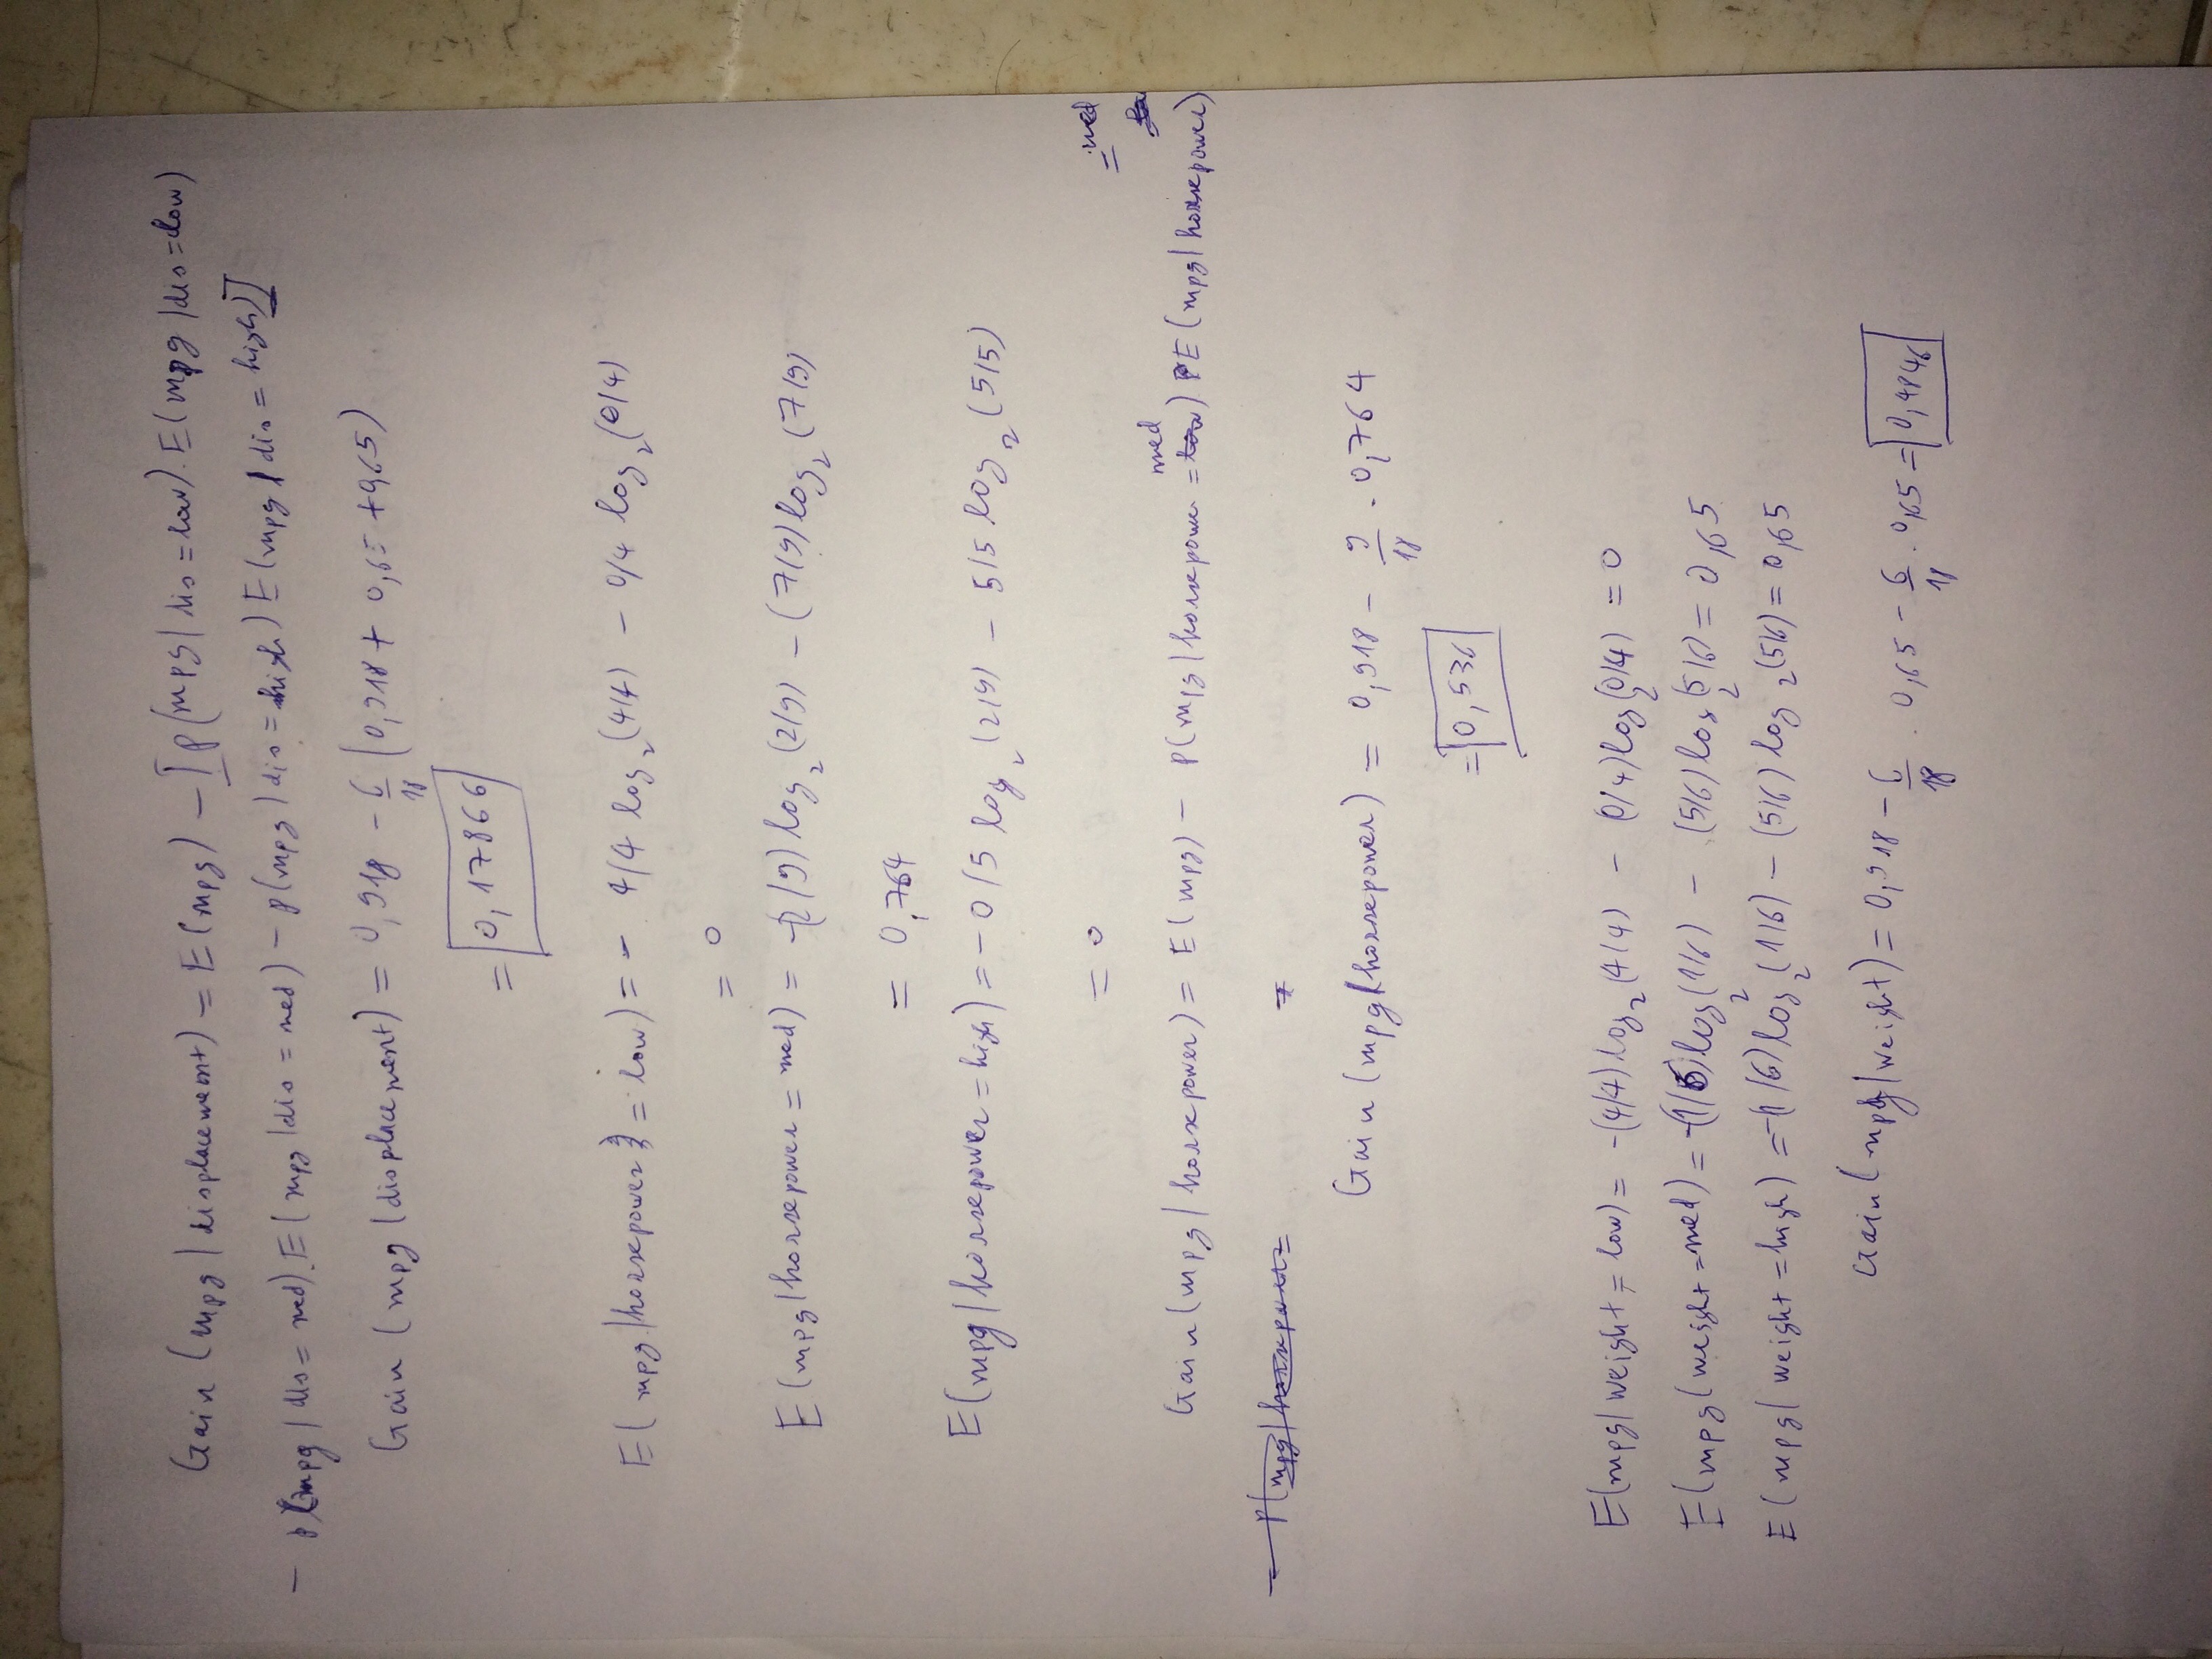 Gain (mpg | displacement) = E (mpg) - [ p(mpg | dis = low). E( mpg | dis = low)
- p(mpg / dis = med). E( mpg | dis = med) - p(mpg) dis = high) E(mpg | dis = high)]
Gain (mpg | displacement) = 0,918 - 6/18 (0,918 + 0,65 + 0,65)
= 0,17866
E( mpg | horsepower = low) = - 4/4 log2 (4/4) - 0/4 log2 (0/4)
= 0
E (mpg | horsepower = med) = -(2/9) log2 (2/9) - (7/9) log2 (7/9)
= 0,764
E(mpg | horsepower = high) = - 0/5 log2 (2/9) - 5/5 log2 (5/5)
= 0
= med
Gain (mpg | horsepower) = E( mpg) - P(mpg | horsepower = med) E (mpg | horsepower)
- P(mpg | horsepower = =
Gain (mpg | horsepower) = 0,918 - 9/18 . 0,764
= 0,536
E(mpg | weight = low) = -(4/4) log2 (4/4) - (0/4) log2 (0/4) = 0
E(mpg | weight = med) = -(1/6) log2 (1/6) - (5/6) log2 (5/6) = 0,65
E (mpg | weight = high) = -(1/6) log2 (1/6) - (5/6) log2 (5/6) = 0,65
Gain (mpg | weight) = 0,918 - 6/18 . 0,65 - 6/18 . 0,65 = 0,4846